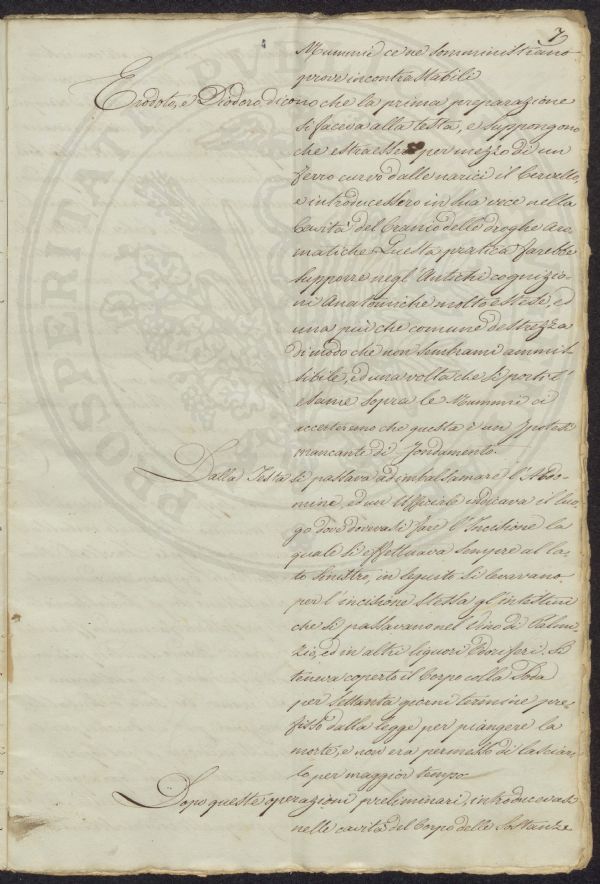 7
Mummie ce ne somministrano
prove incontrastabili
Erodoto, e Diodoro, dicono che la prima preparazione
si faceva alla testa, e suppongono
che estraessero per mezzo di un
ferro curvo dalle narici il Cervello,
e introducessero in sua vece nella
Cavità del Cranio delle droghe Aro
matiche. Questa pratica farebbe
supporre negl'Antichi cognizio-
ni Anatomiche molto estese, ed
una più che comune destrezza
di modo che non sembrami ammis-
sibile, ed una volta che si porti l'
esame sopra le Mummie ci
accerteremo che questa è un Ipotesi
mancante di fondamento.
Dalla Testa si passava ad imbalsamare l'Abdo-
mine, ed un Uffiziale indicava il luo-
go dove dovevasi fare l'Incisione la
quale si effettuava sempre al la-
to sinistro, in seguito si levavano
per l'incisione stessa gl'intestini
che si passavano nel Vino di Palmi-
zio, ed in altri liquori Odoriferi. Si
teneva coperto il Corpo colla Soda
per settanta giorni termine pre-
fisso dalla legge per piangere la
morte, e non era permesso di lasciar-
lo per maggior tempo.
Dopo queste operazioni preliminari, introducevasi
nelle cavità del Corpo delle Sostanze
PROSPERITATI PUB